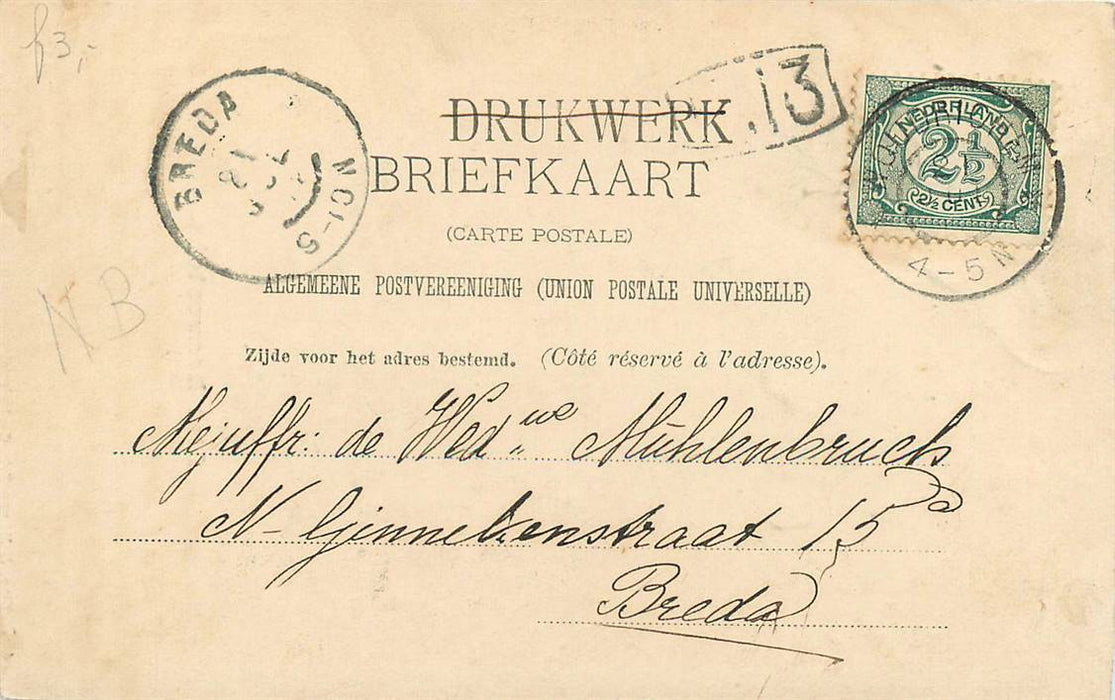 f3,-
BREDA
NO1-S
DRUKWERK
.13
NEDERLAND
2½
2½ CENT
4-5N
BRIEFKAART
(CARTE POSTALE)
ALGEMEENE POSTVEREENIGING (UNION POSTALE UNIVERSELLE)
NB
Zijde voor het adres bestemd. (Côté réservé à l'adresse).
Mejuffr: de Wed.we Mühlenbruch
N-Ginnekenstraat 15a
Breda